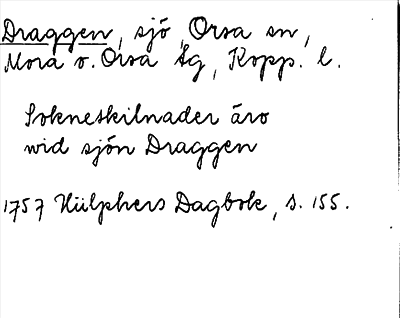 Draggen, sjö, Orsa sn,
Mora o. Orsa tg, Kopp. l.
Sokneskilnader äro
wid sjön Draggen
1757 Hülphers Dagbok, s. 155.